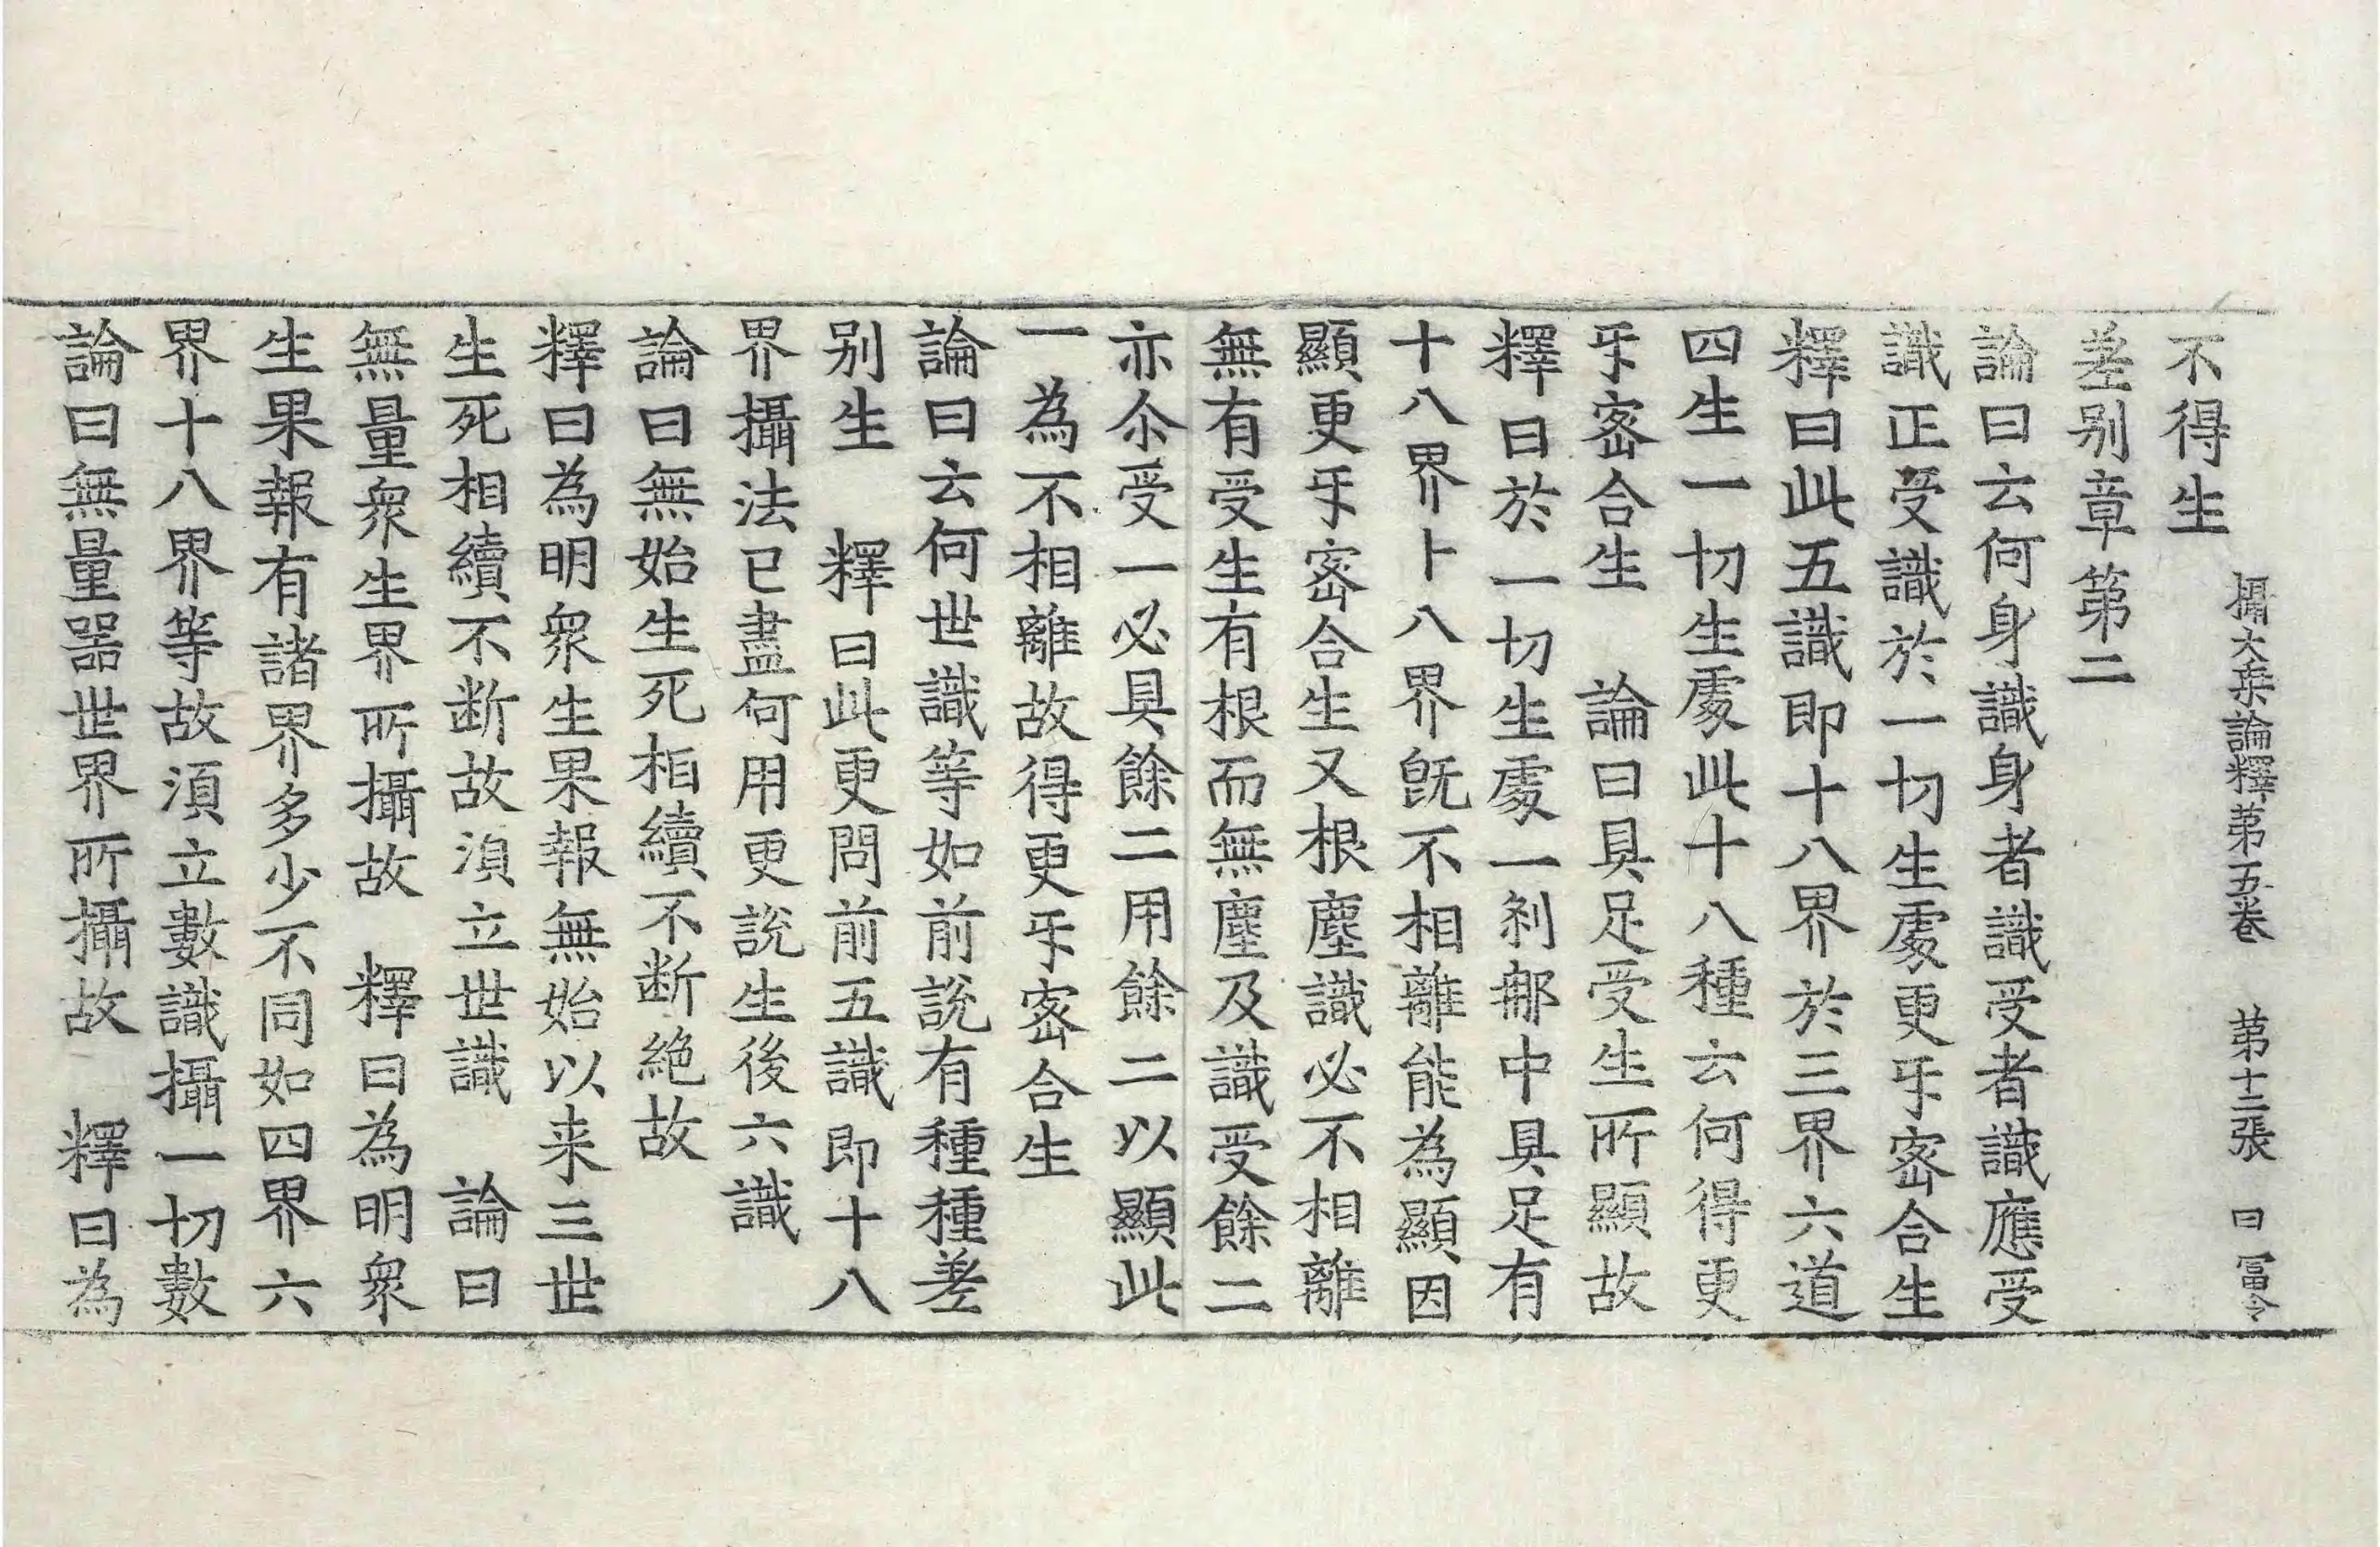 攝大乗論釋第五卷　第十三張　曰　冨令
不得生
差别章第二
論曰云何身識身者識受者識應受
識正受識於一切生處更㸦宻合生
釋曰此五識即十八界於三界六道
四生一切生處此十八種云何得更
㸦宻合生　論曰具足受生所顯故
釋曰於一切生處一剎那中具足有
十八界十八界旣不相離能為顯因
顯更㸦宻合生又根塵識必不相離
無有受生有根而無塵及識受餘二
亦尒受一必具餘二用餘二以顯此
一為不相離故得更㸦宻合生
論曰云何世識等如前說有種種差
别生　釋曰此更問前五識即十八
界攝法已盡何用更說生後六識
論曰無始生死相續不断絶故
釋曰為明衆生果報無始以来三世
生死相續不断故湏立世識　論曰
無量衆生界所攝故　釋曰為明衆
生果報有諸界多少不同如四界六
界十八界等故湏立數識攝一切數
論曰無量器世界所攝故　釋曰為